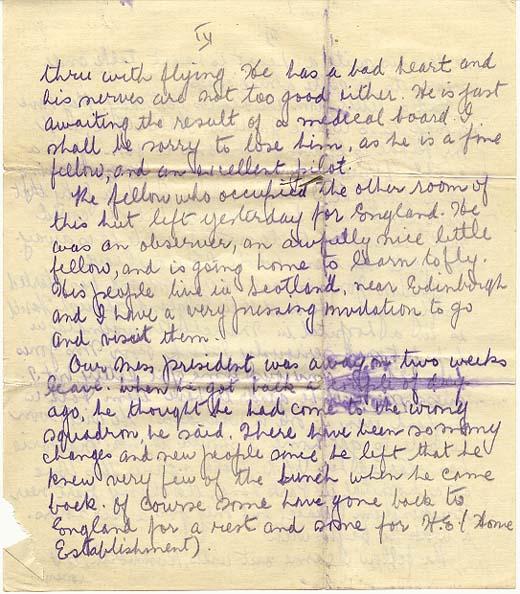 IV
thru with flying. He has a bad heart and
his nerves are not too good either. He is just
awaiting the result of a medical board. I
shall be sorry to lose him, as he is a fine
fellow, and an excellent pilot.
The fellow who occupied the other room of
this hut left yesterday for England. He
was an observer, an awfully nice little
fellow, and is going home to learn to fly.
His people live in Scotland, near Edinburgh
and I have a very pressing invitation to go
and visit them.
Our mess president, was away on two weeks
leave. When he got back a couple of days
ago, he thought he had come to the wrong
squadron, he said. There have been so many
changes and new people since he left that he
knew very few of the bunch when he came
back. Of course some have gone back to
England for a rest and some for H.E. (Home
Establishment).